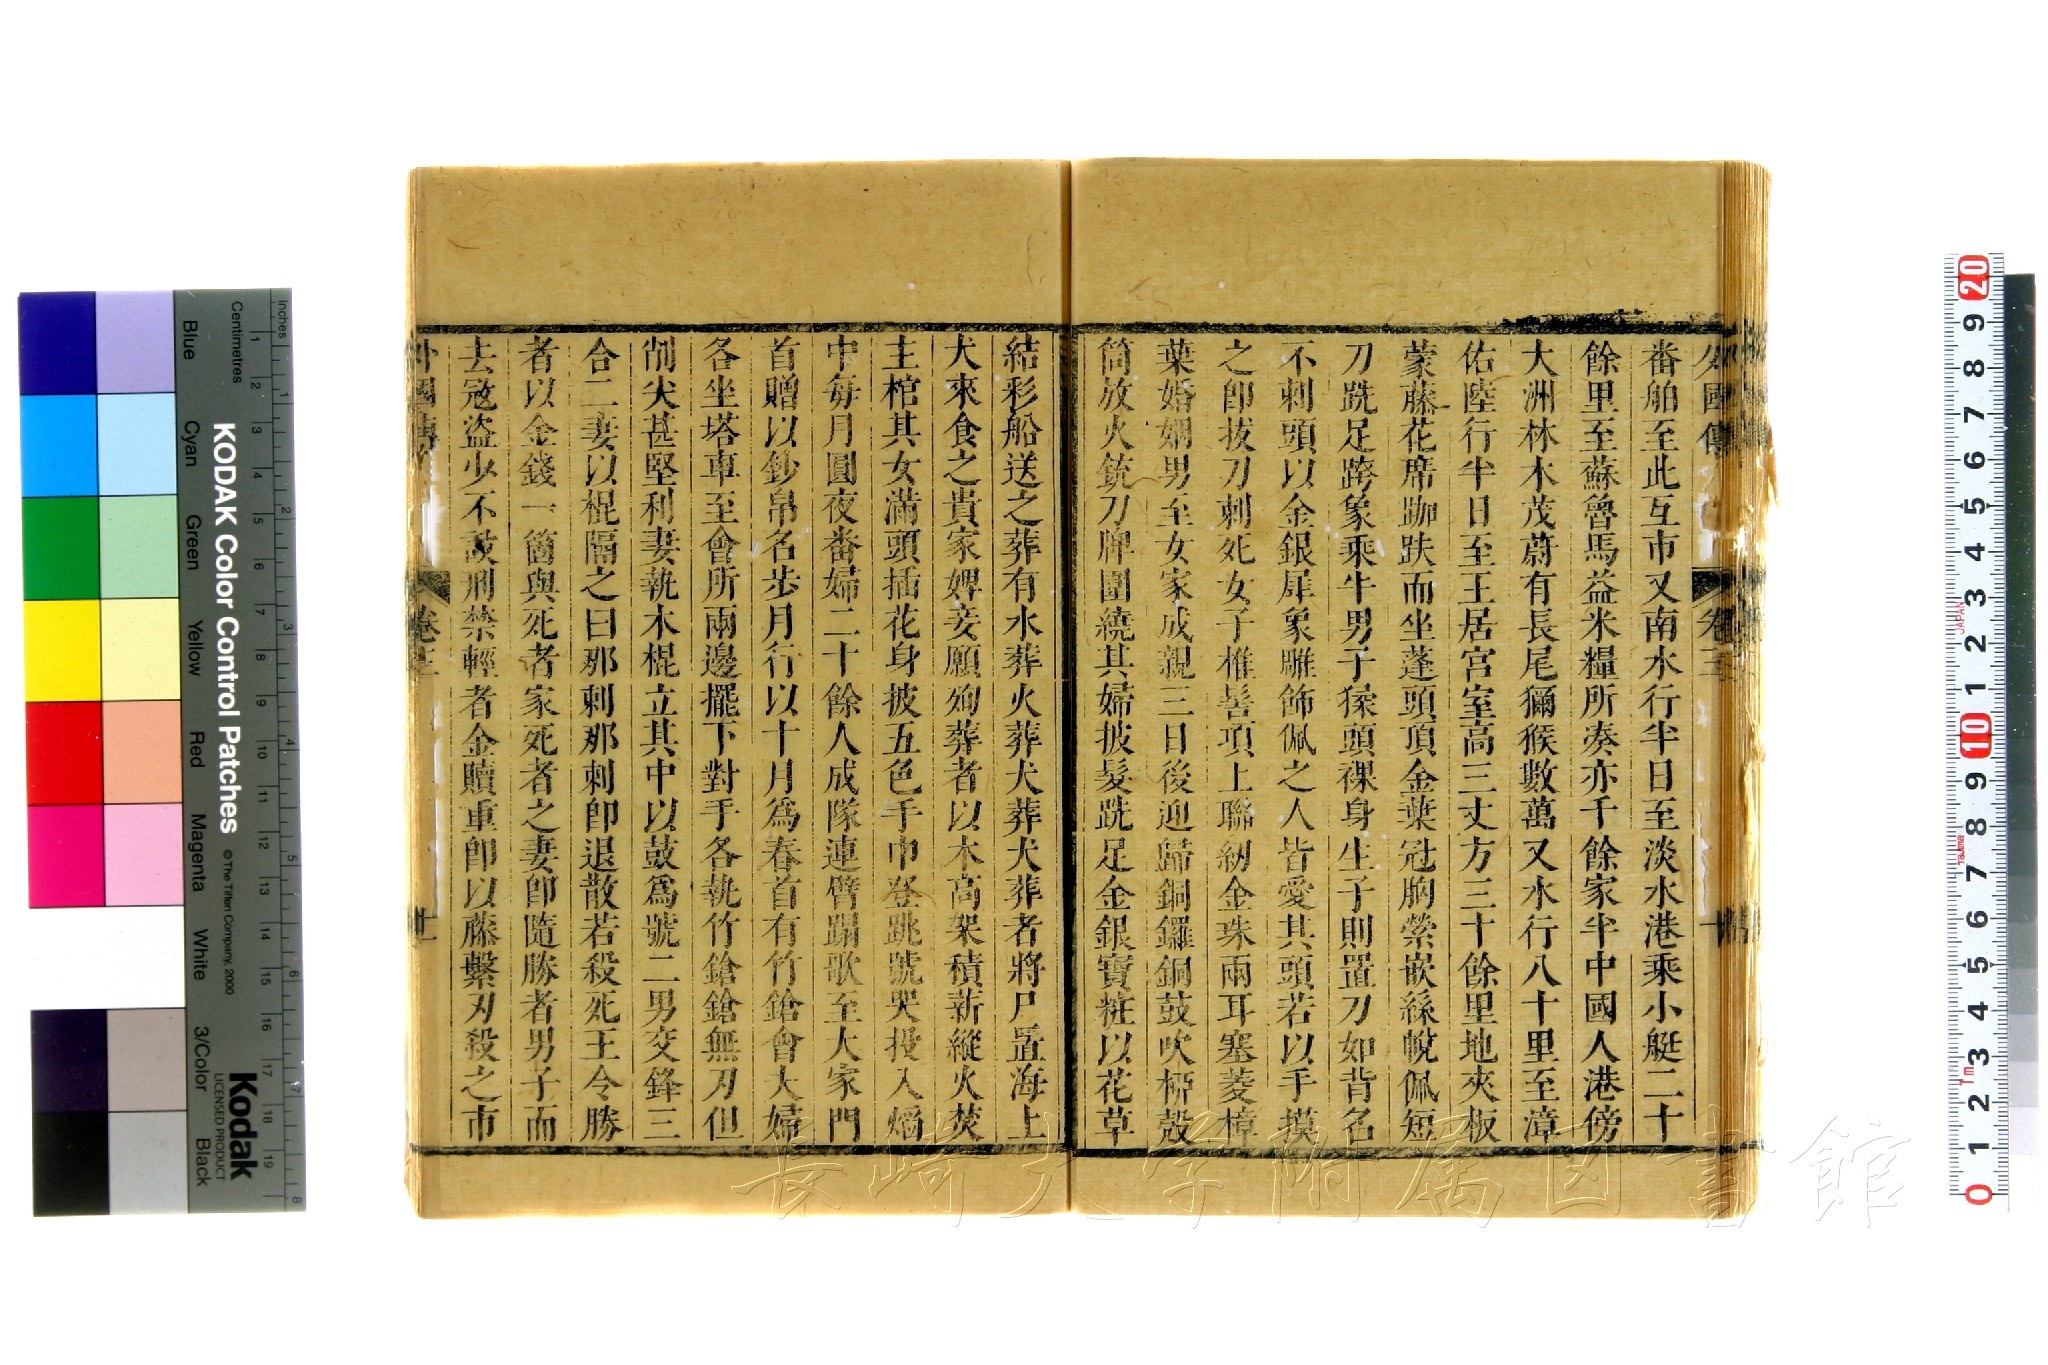 外國傳
卷三
番舶至此互市又南水行半日至淡水港乘小艇二十
餘里至蘇魯馬益米糧所湊亦千餘家半中國人港傍
大洲林木茂蔚有長尾獼猴數萬又水行八十里至漳
佑陸行半日至王居宮室高三丈方三十餘里地夾板
蒙藤花席跏趺而坐蓬頭頂金葉冠胸縈嵌絲帨佩短
刀跣足跨象乘牛男子猱頭裸身生子則置刀如背名
不刺頭以金銀犀象雕飾佩之人皆愛其頭若以手摸
之卽拔刀刺死女子椎髻項上聯紉金珠兩耳塞菱樟
葉婚姻男至女家成親三日後迎歸銅鑼銅鼓吹椰殼
筒放火銃刀牌圍繞其婦披髮跣足金銀寶粧以花草
結彩船送之葬有水葬火葬犬葬犬葬者將尸置海上
犬來食之貴家婢妾願殉葬者以木高架積薪縱火焚
主棺其女滿頭插花身披五色手巾登跳號哭投入熖
中每月圓夜番婦二十餘人成隊連臂蹋歌至大家門
首贈以鈔帛名步月行以十月爲春首有竹鎗會夫婦
各坐塔車至會所兩邊擺下對手各執竹鎗鎗無刃但
削尖甚堅利妻執木棍立其中以鼓爲號二男交鋒三
合二妻以棍隔之曰那剌那剌卽退散若殺死王令勝
者以金錢一箇與死者家死者之妻卽隨勝者男子而
去寇盜少不設刑禁輕者金贖重卽以藤繫刃殺之市
外國傳
卷三
Inches
Centimetres
KODAK Color Control Patches
© The Tiffen Company, 2000
Kodak
LICENSED PRODUCT
Blue
Cyan
Green
Yellow
Red
Magenta
White
3/Color
Black
JAPAN
長崎大学附属図書館